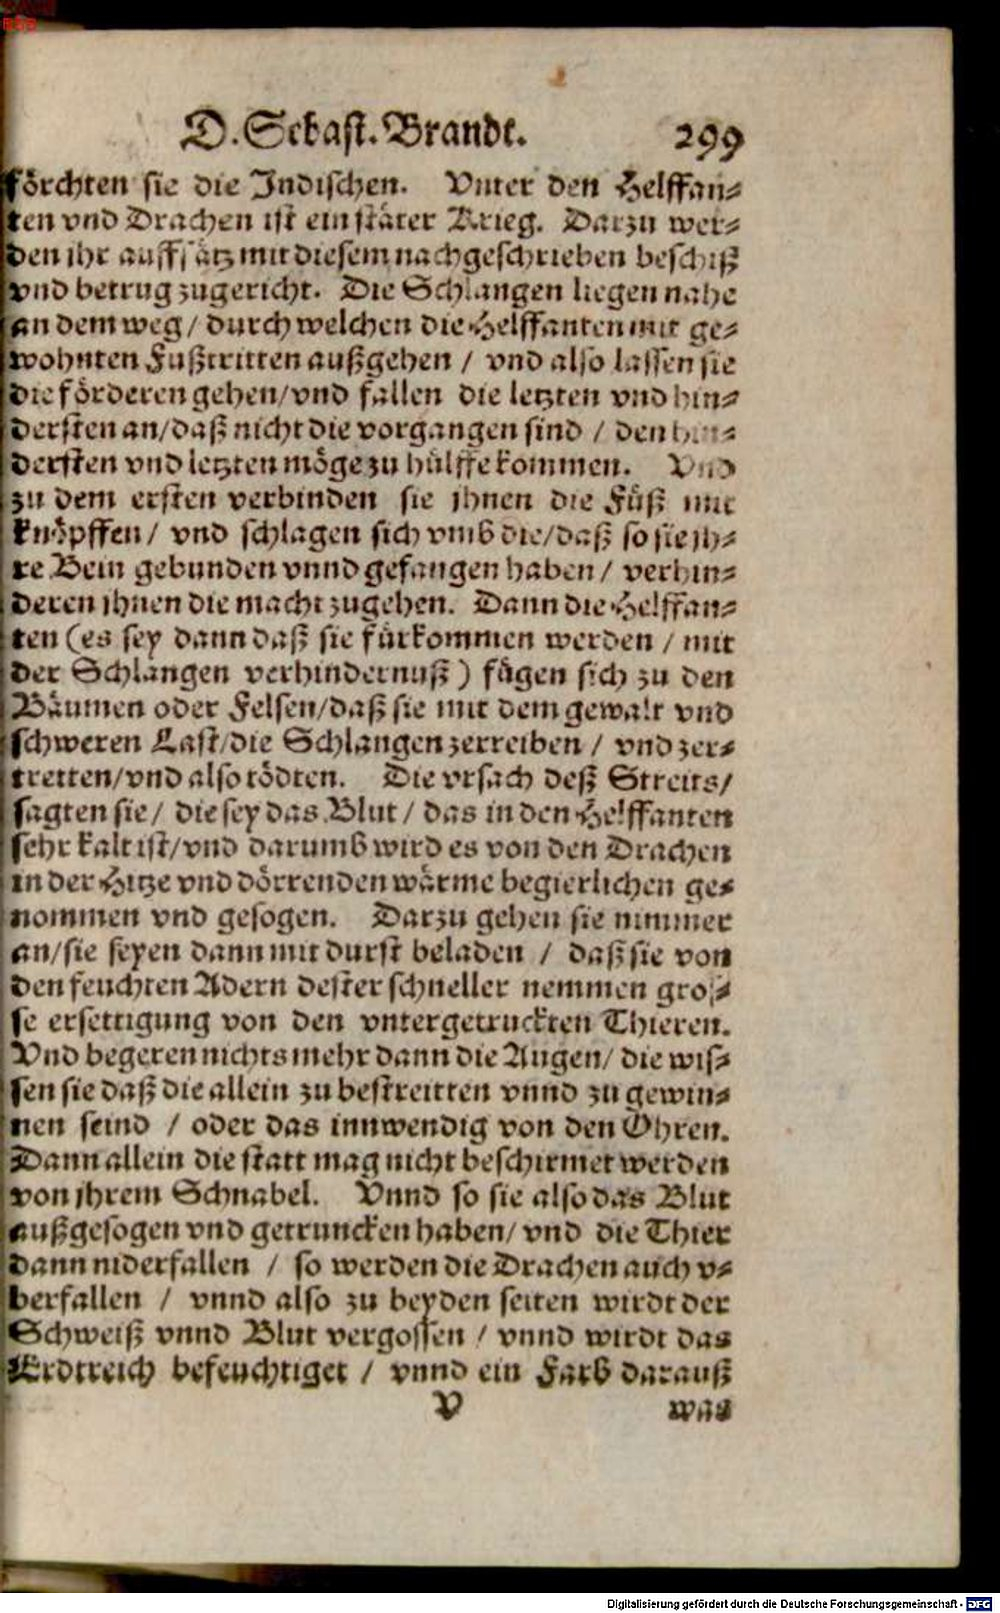 D. Sebast. Brandt. 299
förchten sie die Indischen. Vnter den Helffan⸗
ten vnd Drachen ist ein stäter Krieg. Darzu wer⸗
den ihr auffsätz mit diesem nachgeschrieben beschiß
vnd betrug zugericht. Die Schlangen liegen nahe
an dem weg / durch welchen die Helffanten mit ge⸗
wohnten Fußtritten außgehen / vnd also lassen sie
die förderen gehen/vnd fallen die letzten vnd hin⸗
dersten an/daß nicht die vorgangen sind / den hin⸗
dersten vnd letzten möge zu hülffe kommen. Vnd
zu dem ersten verbinden sie jhnen die Füß mit
knöpffen / vnd schlagen sich vmb die/daß so sie jh⸗
re Bein gebunden vnnd gefangen haben / verhin⸗
deren jhnen die macht zugehen. Dann die Helffan⸗
ten (es sey dann daß sie fürkommen werden / mit
der Schlangen verhindernuß) fügen sich zu den
Bäumen oder Felsen/daß sie mit dem gewalt vnd
schweren Last/die Schlangen zerreiben / vnd zer⸗
tretten/vnd also tödten. Die vrsach deß Streits/
sagten sie / die sey das Blut / das in den Helffanten
sehr kalt ist/vnd darumb wird es von den Drachen
in der Hitze vnd dörrenden wärme begierlichen ge⸗
nommen vnd gesogen. Darzu gehen sie nimmer
an/sie seyen dann mit durst beladen / daß sie von
den feuchten Adern dester schneller nemmen gros⸗
se ersettigung von den vntergetruckten Thieren.
Vnd begeren nichts mehr dann die Augen/ die wis⸗
sen sie daß die allein zu bestreitten vnnd zu gewin⸗
nen seind / oder das innwendig von den Ohren.
Dann allein die statt mag nicht beschirmet werden
von jhrem Schnabel. Vnnd so sie also das Blut
außgesogen vnd getruncken haben/ vnd die Thier
dann niderfallen / so werden die Drachen auch v⸗
berfallen / vnnd also zu beyden seiten wirdt der
Schweiß vnnd Blut vergossen / vnnd wirdt das
Erdtreich befeuchtiget / vnnd ein Farb darauß
V was
Digitalisierung gefördert durch die Deutsche Forschungsgemeinschaft - DFG